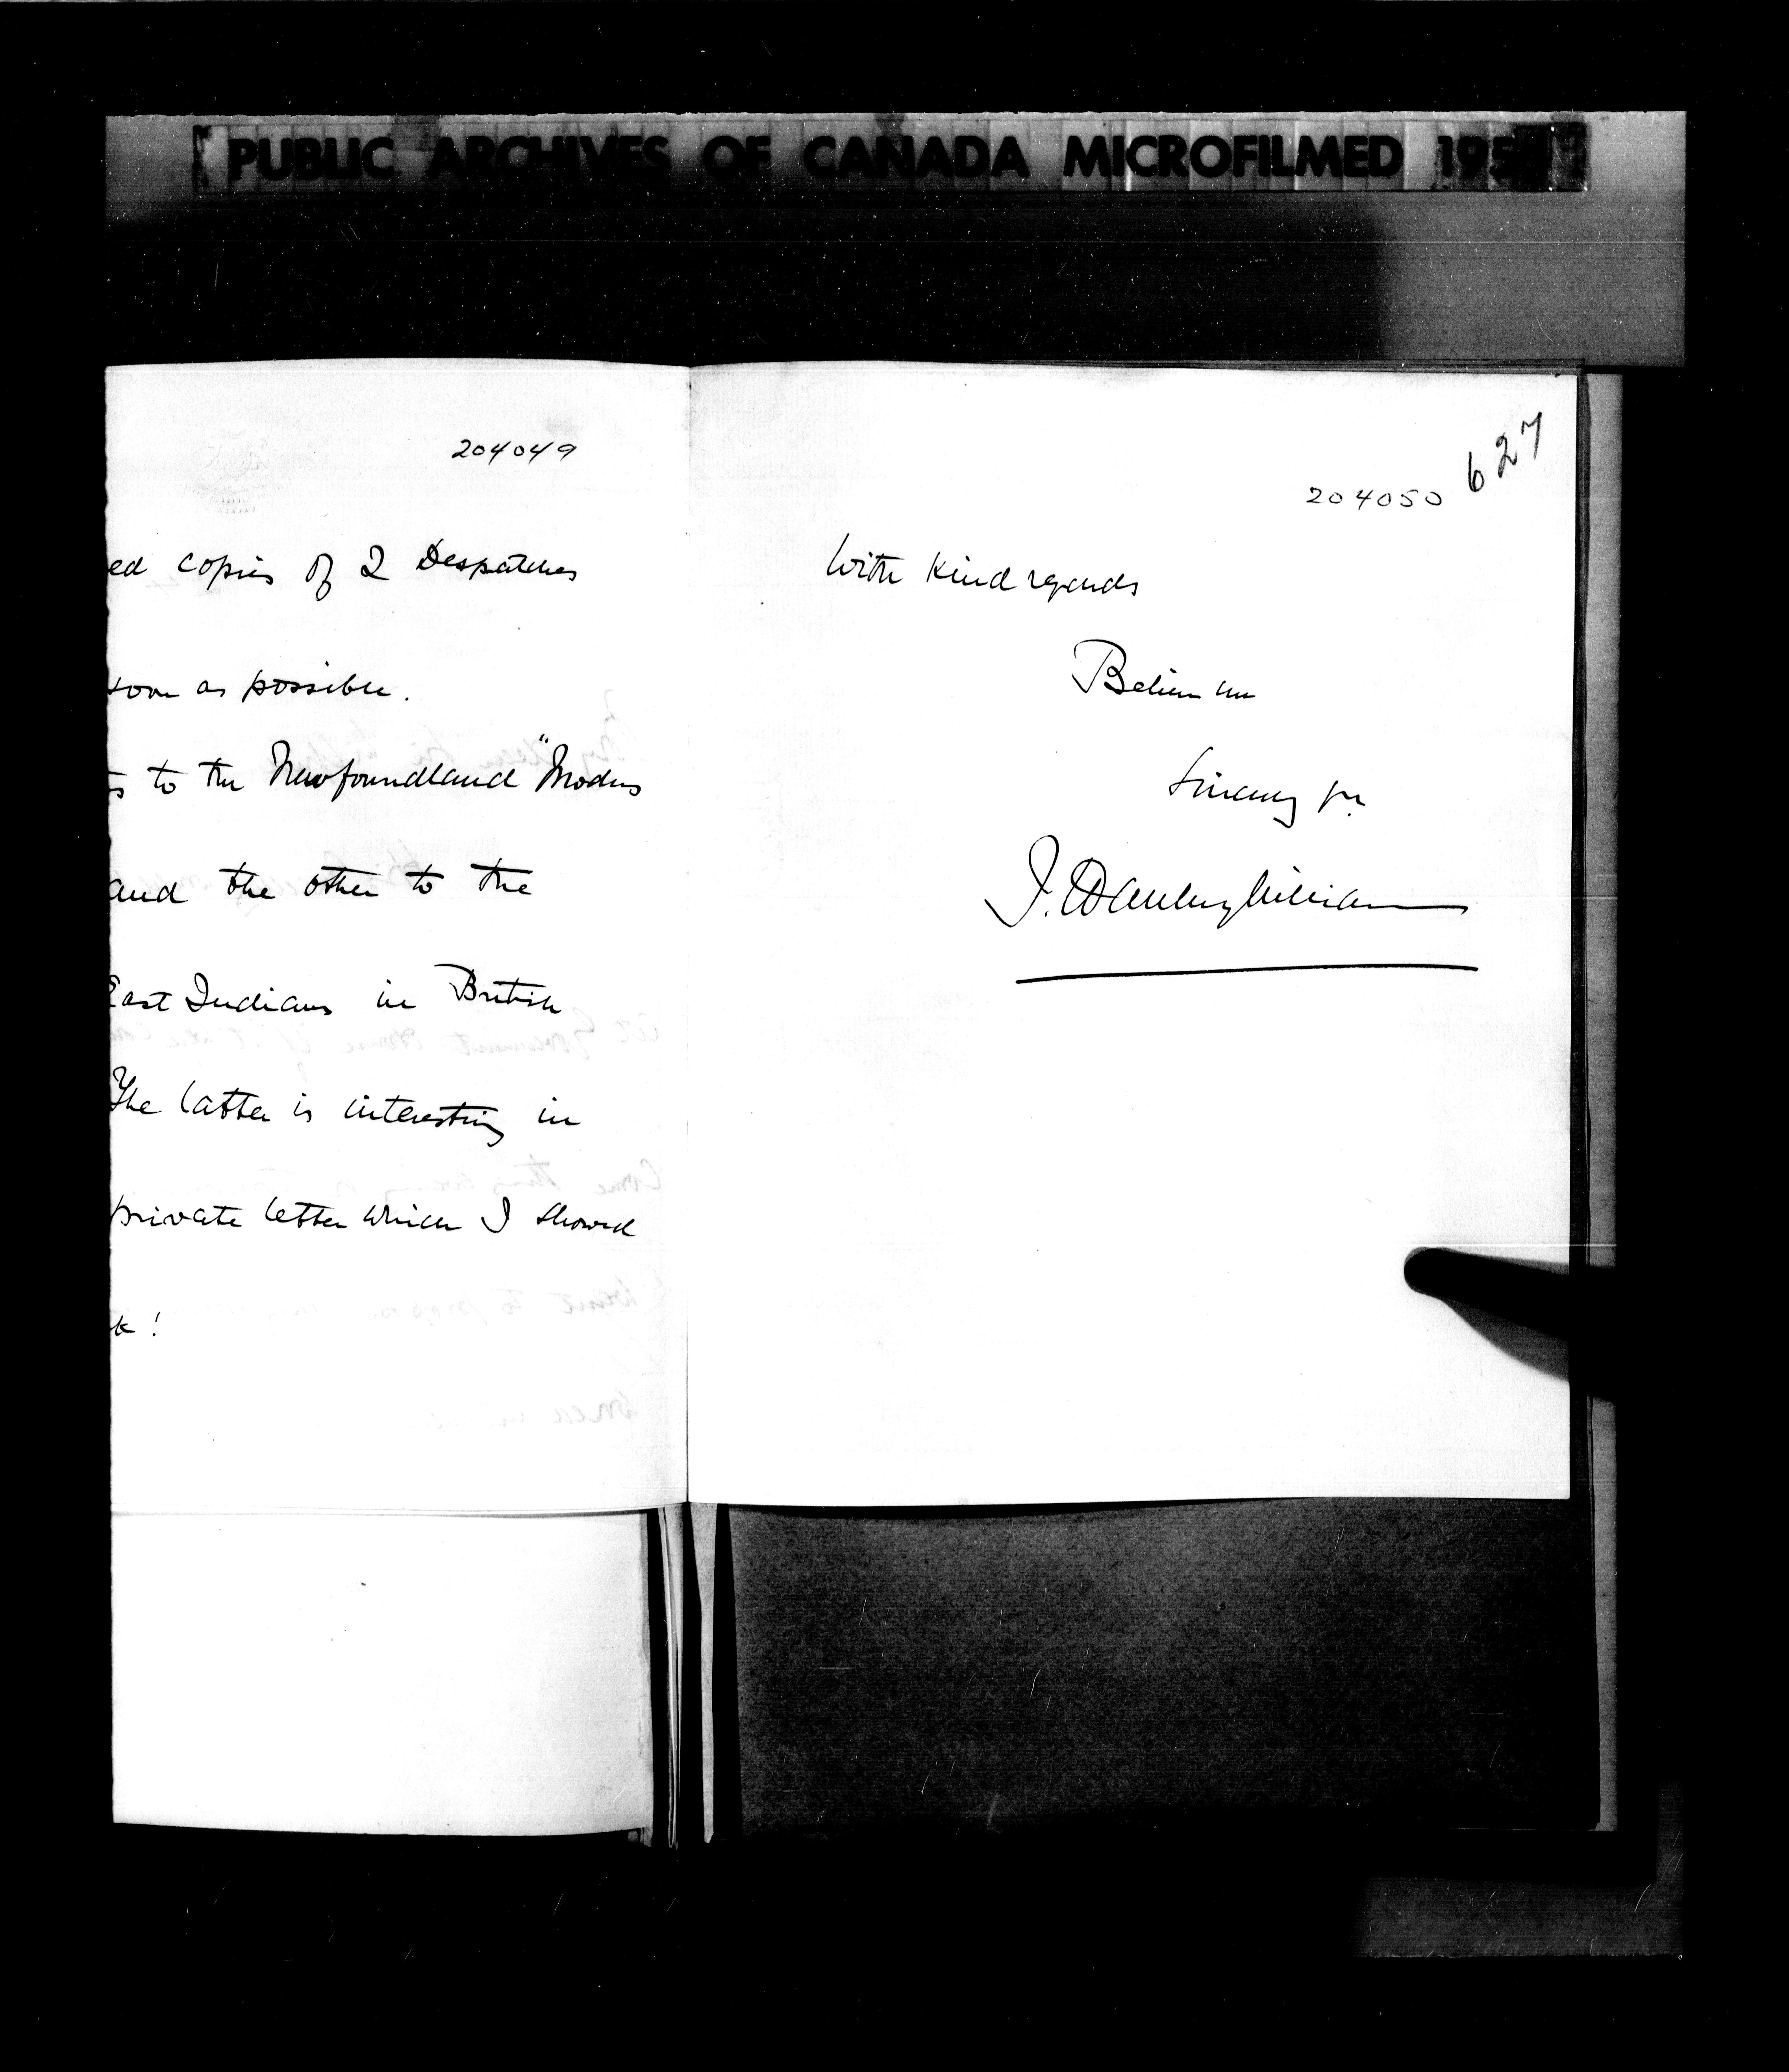 PUBLIC ARCHIVES OF CANADA MICROFILMED 195
204049
ed copies of 2 Despatches
soon as possible.
s to the Newfoundland "Modus
and the other to the
East Indians in British
The latter is interesting in
private letter which I showed
k!
627
204050
With kind regards
Believe me
Sincerely yrs